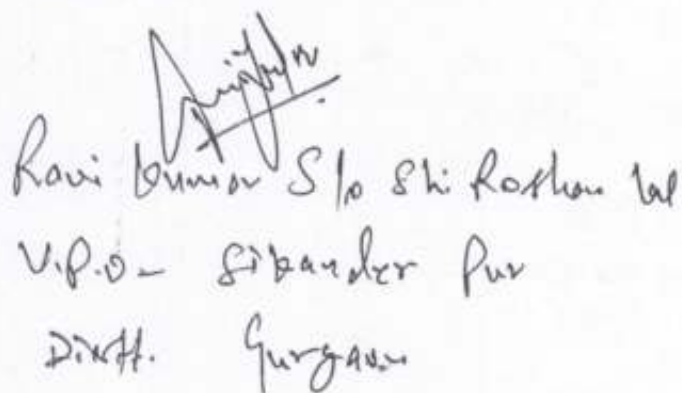 Ravi Kumar S/o Shi Roshan Lal
V.P.O- Sikander Pur
Distt. Gurgaon